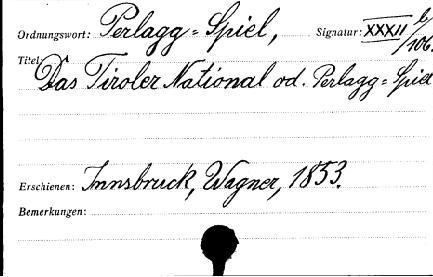 Ordnungswort: Perlagg=Spiel, Signatur: XXXII b/106.
Titel:
Das Tiroler National od. Perlagg=Spiel
Erschienen: Innsbruck, Wagner, 1853.
Bemerkungen: